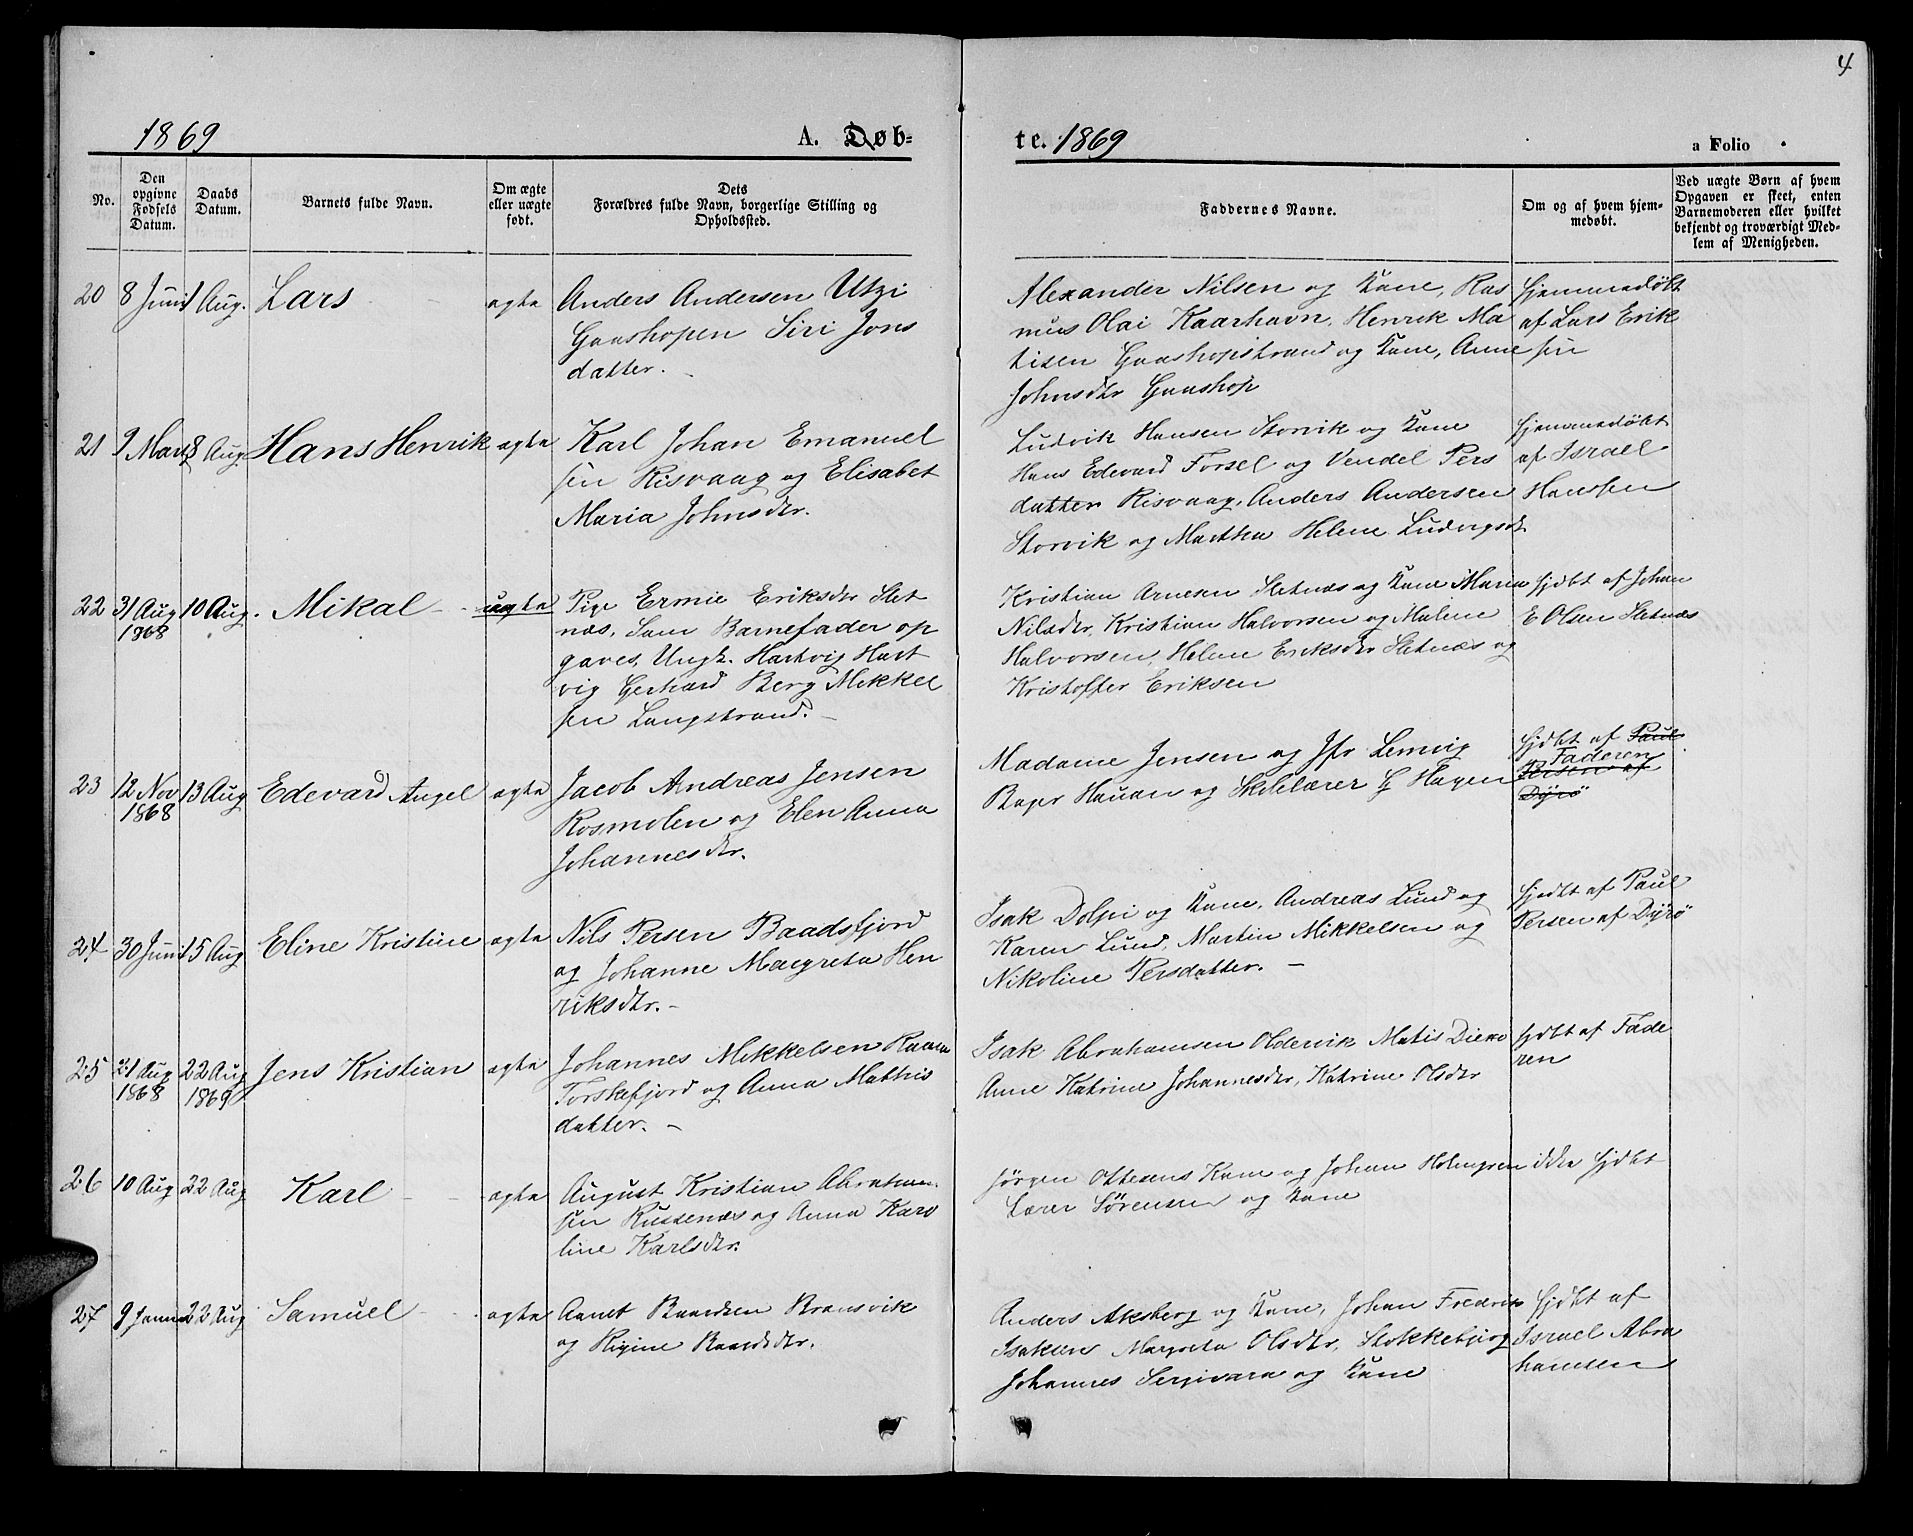 4
1869
A. Døb-
te. 1869
a Folio
No.
Den
opgivne
Fødsels
Datum.
Daabs
Datum.
Barnets fulde Navn.
Om ægte
eller uægte
født.
Dets
Forældres fulde Navn, borgerlige Stilling og
Opholdssted.
Faddernes Navne.
Om og af hvem hjem-
medøbt.
Ved uægte Børn af hvem
Opgaven er skeet, enten
Barnemoderen eller hvilket
bekjendt og troværdigt Med-
lem af Menigheden.
20 8 Juni 1 Aug. Lars ægte
Anders Andersen Utzi
Gaashopen Siri Jons
datter.
Alexander Nilsen og Kone, Ras
mus Olai Kaarhavn, Henrik Ma
tisen Gaashopstrand og Kone, Anne
Johnsdtr Gaashop
hjemmedøbt
af Lars Erik
sen
21 9 Mars 8 Aug. Hans Henrik ægte
Karl Johan Emanuel
sen Risvaag og Elisabet
Maria Johnsdtr.
Ludvik Hansen Storvik og Kone
Hans Edevard Forsel og Vendel Pers
datter Risvaag, Anders Andersen
Storvik og Martha Helene Ludvigsdt
hjemmedøbt
af Israel
Hanssen
22 31 Aug 1868 10 Aug. Mikal uægte
Pige Ermie Eriksdtr Slet
næs, Som Barnefader op
gaves, Ungk. Hartvig Hart
vig Gerhard Berg Mikkel
sen Langstrand.
Kristian Arnesen Sletnæs og Kone Maren
Nilsdtr, Kristian Halvorsen og Malene
Halvorsen, Helene Eriksdtr Sletnæs og
Kristoffer Eriksen
hjdbt af Johan
E Olsen Sletnæs
23 12 Nov 1868 13 Aug Edevard Angel ægte
Jacob Andreas Jensen
Rosmolen og Elen Anna
Johannesdtr.
Madame Jensen og Jfr Lemvig
Bager Hauan og Skolelærer G Hagen
hjdbt af Paul
Faderen
Persen af
Dyrø
24 30 Juni 15 Aug Eline Kristine ægte
Nils Persen Baadsfjord
og Johanne Margreta Hen
riksdtr.
Isak Dolpi og Kone, Andreas Lund og
Karen Lund, Martin Mikkelsen og
Nikoline Persdatter.
hjedbt af Paul
Persen af Dyrø
25 21 Aug 1868 22 Aug 1869 Jens Kristian ægte
Johannes Mikkelsen
Torskefjord og Anna Mathis
datter.
Isak Abrahamsen Oldervik Matis
Anne Katrine Johannesdtr, Katrine Olsdtr
hjdbt af Fade
ren
26 10 Aug 22 Aug Karl ægte
August Kristian Abraham
sen Russenæs og Anna Karo
line Karlsdtr.
Jørgen Ottesens Kone og Johan Holmgren
Lærer Sørensen og Kone
ikke hjdbt
27 9 22 Aug Samuel ægte
Aanet Baardsen Kransvik
og Regine Baardsdtr.
Anders Aksberg og Kone, Johan Fredrik
Isaksen Margreta Olsdtr, Stokkebjerg
Johannes og Kone
hjdbt af
Israel Abra
hamsen